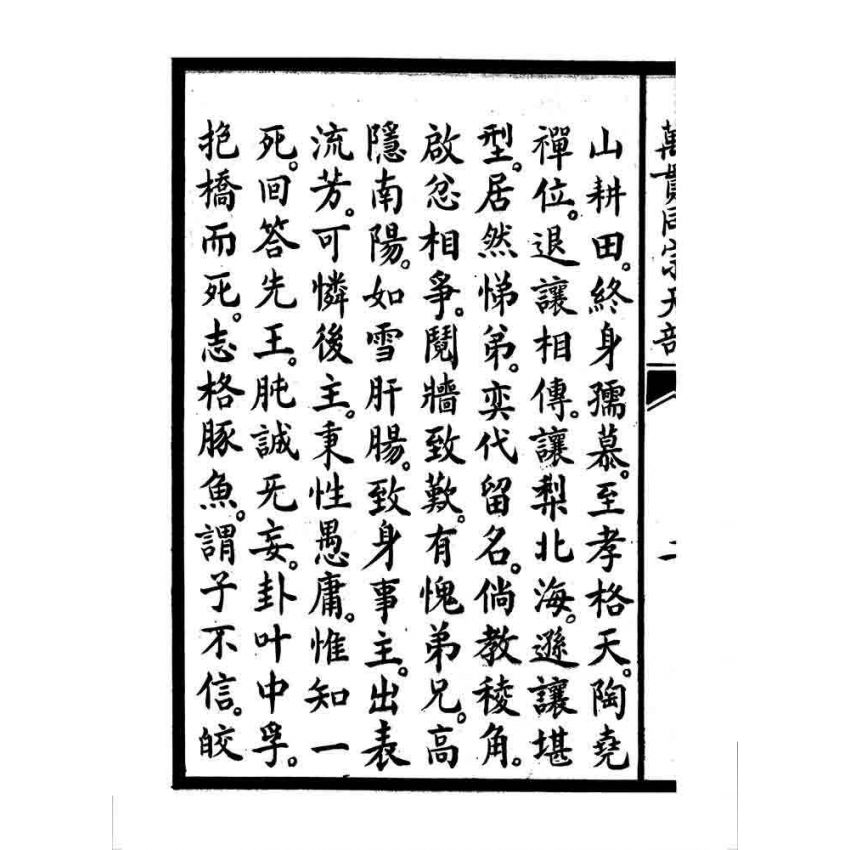 萬貫同宗天部
二
山耕田。終身孺慕。至孝格天。陶堯
禪位。退讓相傳。讓梨北海。遜讓堪
型。居然悌弟。奕代留名。倘教稜角。
啟忿相爭。鬩牆致歎。有愧弟兄。高
隱南陽。如雪肝腸。致身事主。出表
流芳。可憐後主。秉性愚庸。惟知一
死。回答先王。肫誠旡妄。卦叶中孚。
抱橋而死。志格豚魚。謂子不信。皎